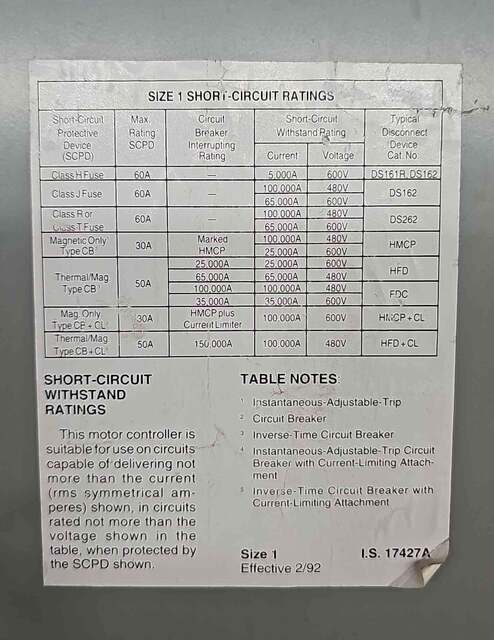 SIZE 1 SHORT-CIRCUIT RATINGS
Short-Circuit Protective Device (SCPD) | Max. Rating SCPD | Circuit Breaker Interrupting Rating | Short-Circuit Withstand Rating | Typical Disconnect Device Cat. No.
Current | Voltage
Class H Fuse | 60A | — | 5,000A | 600V | DS161R, DS162
Class J Fuse | 60A | — | 100,000A | 480V | DS162
65,000A | 600V
Class R or Class T Fuse | 60A | — | 100,000A | 480V | DS262
65,000A | 600V
Magnetic Only Type CB | 30A | Marked HMCP | 100,000A | 480V | HMCP
25,000A | 600V
Thermal/Mag Type CB | 50A | 25,000A | 25,000A | 600V | HFD
65,000A | 65,000A | 480V
100,000A | 100,000A | 480V | FDC
35,000A | 35,000A | 600V
Mag. Only Type CB + CL | 30A | HMCP plus Current Limiter | 100,000A | 600V | HMCP + CL
Thermal/Mag Type CB + CL | 50A | 150,000A | 100,000A | 480V | HFD + CL
SHORT-CIRCUIT
WITHSTAND
RATINGS
This motor controller is
suitable for use on circuits
capable of delivering not
more than the current
(rms symmetrical am-
peres) shown, in circuits
rated not more than the
voltage shown in the
table, when protected by
the SCPD shown.
TABLE NOTES:
1 Instantaneous-Adjustable-Trip
2 Circuit Breaker
3 Inverse-Time Circuit Breaker
4 Instantaneous-Adjustable-Trip Circuit
Breaker with Current-Limiting Attach-
ment
5 Inverse-Time Circuit Breaker with
Current-Limiting Attachment
Size 1 I.S. 17427A
Effective 2/92